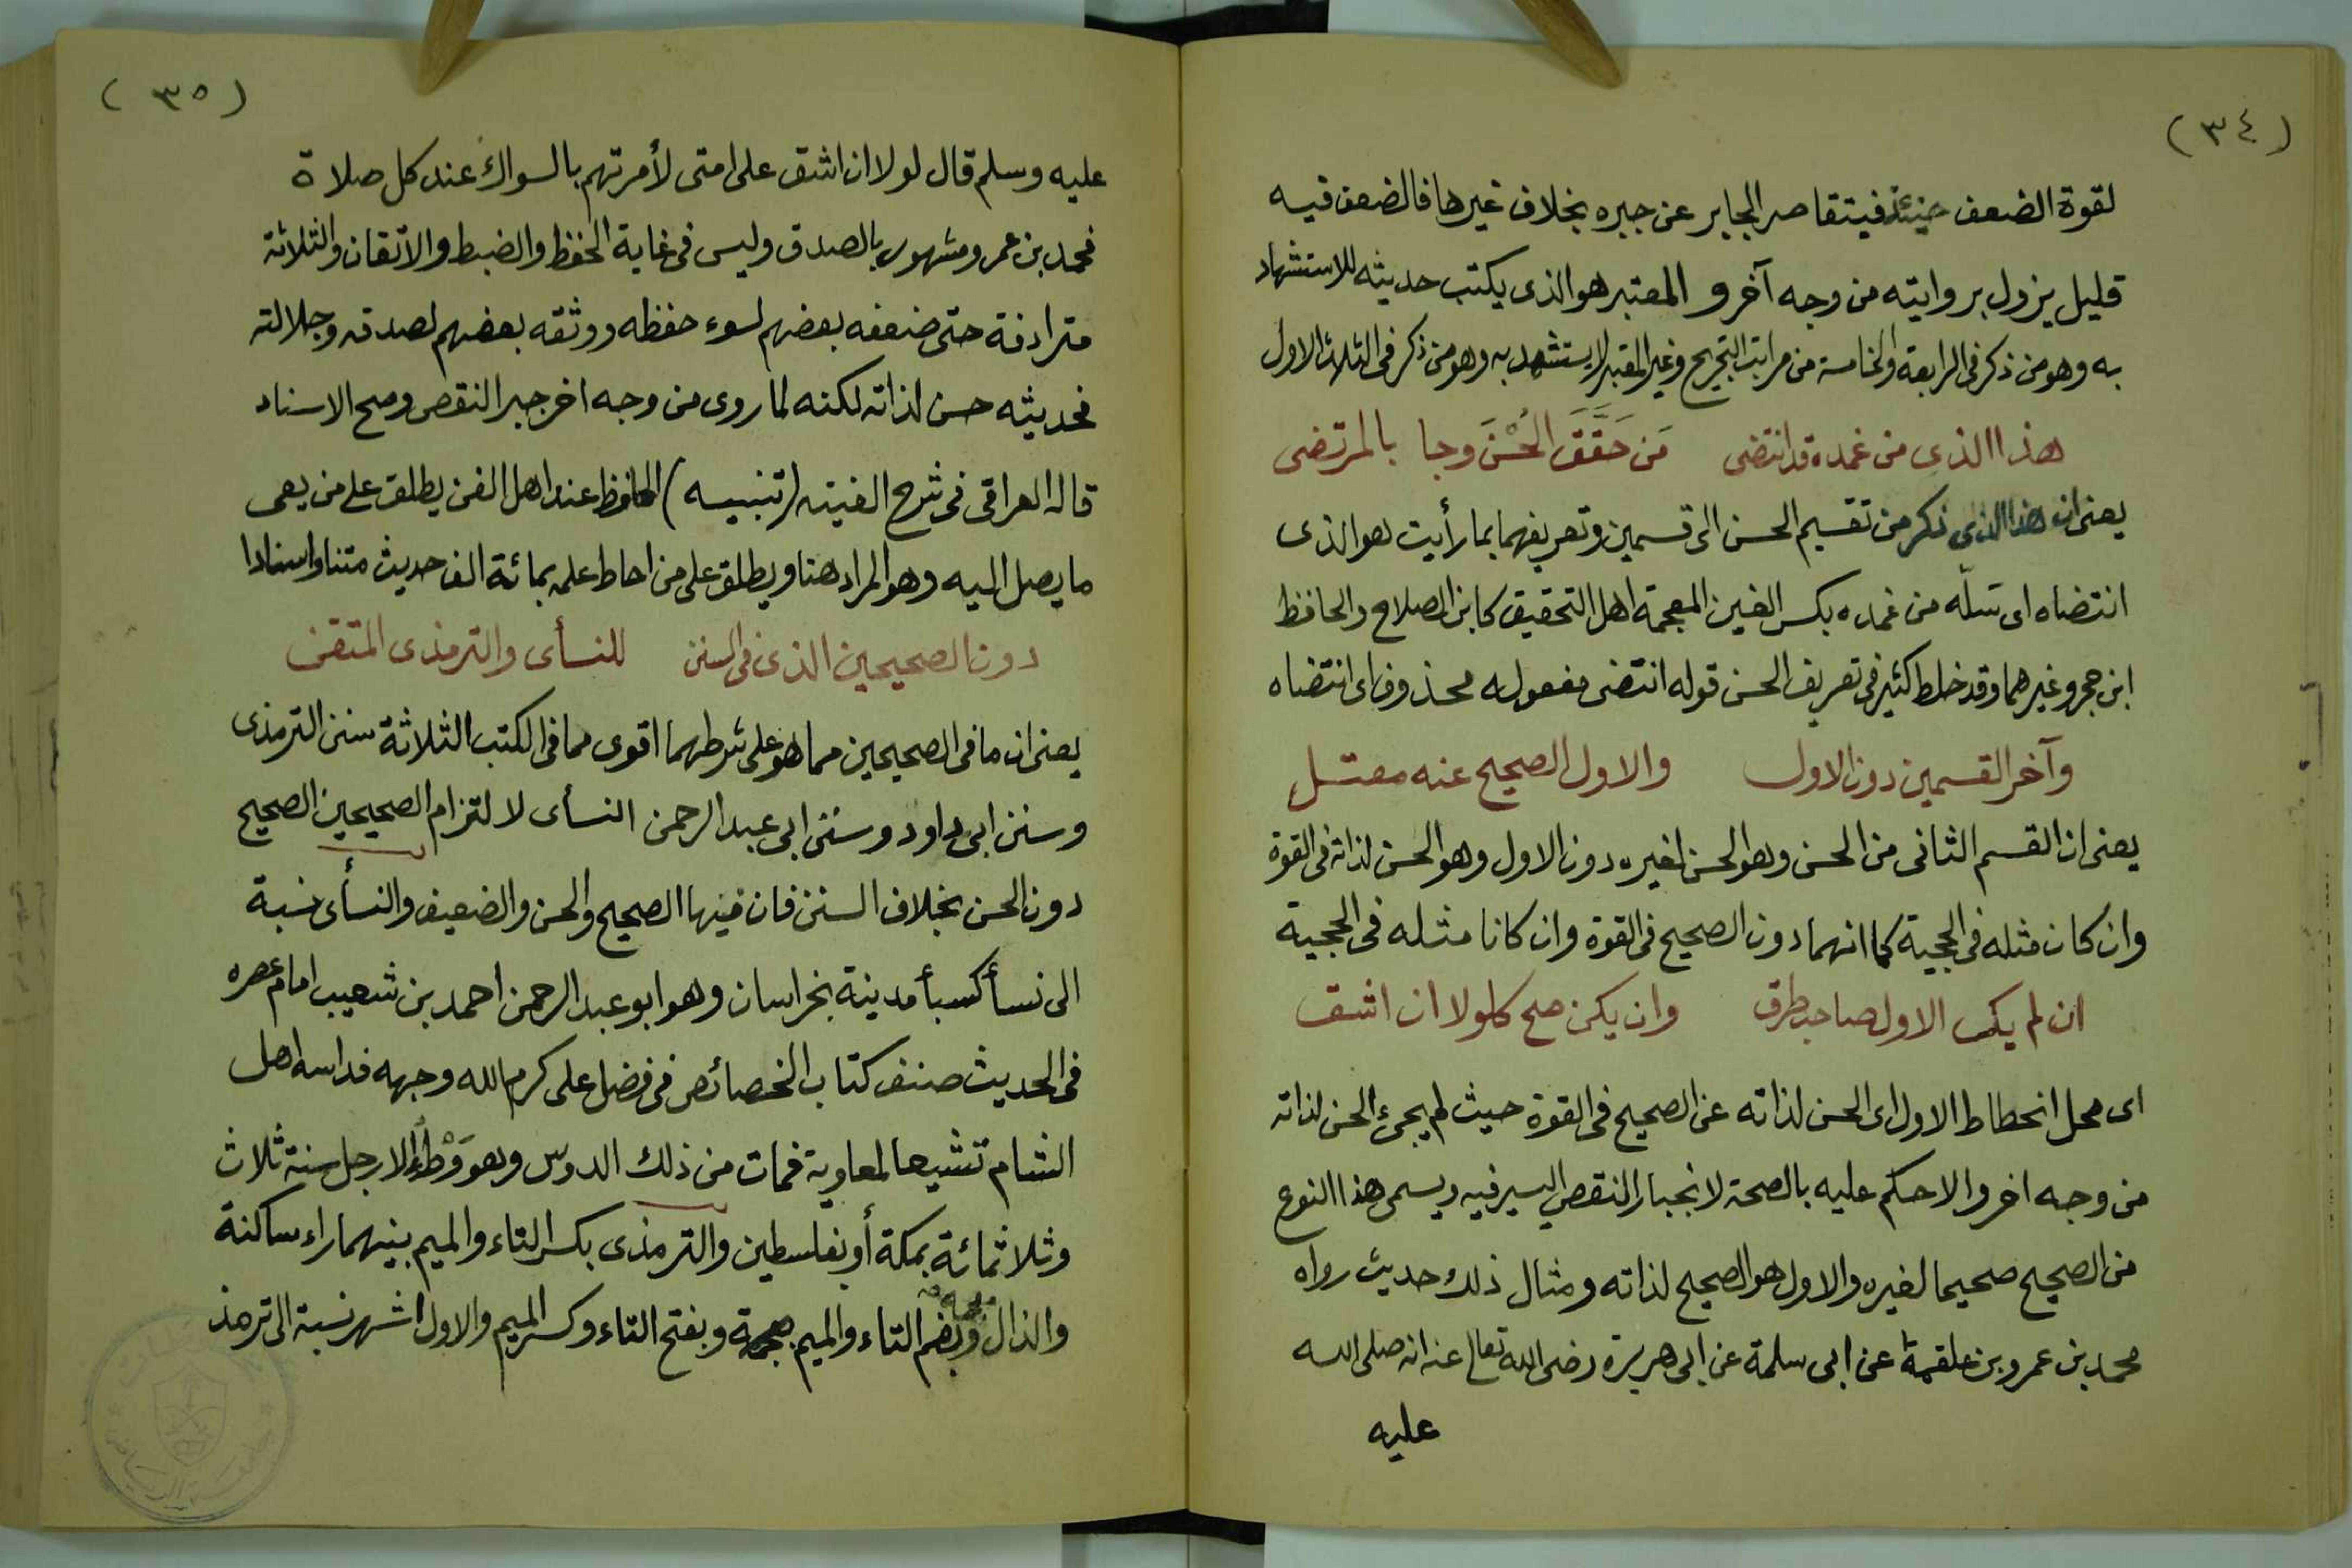 (٣٤)
لقوة الضعف حينئذ فيتقاصر الجابر عن جبره بخلاف غيرها فالضعف فيه
قليل يزول بروايته من وجه آخر و المعتبر هو الذى يكتب حديثه للاستشهاد
به وهو من ذكر فى الرابعة والخامسة من مراتب التجريح وغير المعتبر لا يستشهد به وهو من ذكر فى الثلاث الاول
هذا الذى من غمده قد انتضى مَن حَقَّقَ الحُسْنَ وجا بالمرتضى
يعنى ان هذا الذى ذكر من تقسيم الحسن الى قسمين وتعريفهما بما رأيت هو الذى
انتضاه اى سلّه من غمده بكسر الغين المعجمة اهل التحقيق كابن الصلاح والحافظ
ابن حجر وغيرهما وقد خلط كثير فى تعريف الحسن قوله انتضى مفعوله محذوف اى انتضاه
وآخر القسمين دون الاول والاول الصحيح عنه معتل
يعنى ان القسم الثانى من الحسن وهو الحسن لغيره دون الاول وهو الحسن لذاته فى القوة
وان كان مثله فى الحجية كما انهما دون الصحيح فى القوة وان كانا مثله فى الحجية
ان لم يكن الاول صاحب طرق وان يكن صح كلولا ان اشق
اى محل انحطاط الاول اى الحسن لذاته عن الصحيح فى القوة حيث لم يجئ الحسن لذاته
من وجه اخر والا حكم عليه بالصحة لانجبار النقص اليسير فيه ويسمى هذا النوع
من الصحيح صحيحا لغيره والاول هو الصحيح لذاته ومثال ذلك حديث رواه
محمد بن عمرو بن علقمة عن ابى سلمة عن ابى هريرة رضى الله تعالى عنه انه صلى الله
عليه
(٣٥)
عليه وسلم قال لولا ان اشق على امتى لأمرتهم بالسواك عند كل صلاة
فمحمد بن عمرو مشهور بالصدق وليس فى غاية الحفظ والضبط والاتقان والثلاثة
مترادفة حتى ضعفه بعضهم لسوء حفظه ووثقه بعضهم لصدقه وجلالته
فحديثه حسن لذاته لكنه لما روى من وجه اخر جبر النقص وصح الاسناد
قاله العراقى فى شرح الفيته (تنبيه) الحافظ عند اهل الفن يطلق على من يعى
ما يصل اليه وهو المراد هنا ويطلق على من احاط علمه بمائة الف حديث متنا واسنادا
دون الصحيحين الذى فى السنن للنسأى والترمذى المتقن
يعنى ان ما فى الصحيحين مما هو على شرطهما اقوى مما فى الكتب الثلاثة سنن الترمذى
وسنن ابى داود وسنن ابى عبد الرحمن النسأى لا لتزام الصحيحين الصحيح
دون الحسن بخلاف السنن فان فيها الصحيح والحسن والضعيف والنسأى نسبة
الى نسأ كسبأ مدينة بخراسان وهو ابو عبد الرحمن احمد بن شعيب امام عصره
فى الحديث صنف كتاب الخصائص فى فضل على كرم الله وجهه فداسه اهل
الشام تشيعا لمعاوية فمات من ذلك الدوس وهو وَطْءُ الارجل سنة ثلاث
وثلاثمائة بمكة أو بفلسطين والترمذى بكسر التاء والميم بينهما راء ساكنة
والذال معجمة وبضم التاء والميم وبفتح التاء وكسر الميم والاول اشهر نسبة الى ترمذ